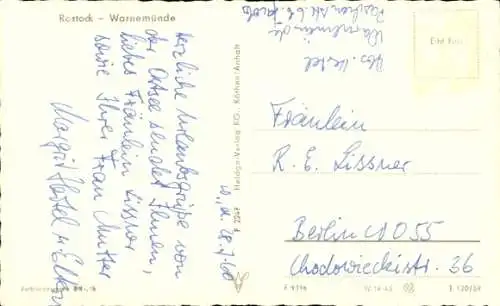 Rostock – Warnemünde
Herzliche Urlaubsgrüße von
der Ostsee sendet Ihnen,
liebes Fräulein Lissner
sowie Ihrer Frau Mutter
Margit Hertel u. Eltern
W., d. 28.7.60
Abs. Hertel
Warnemünde
Heldge-Verlag KG., Köthen-Anhalt
Fräulein
R. E. Lissner
Berlin NO 55
Chodowieckistr. 36